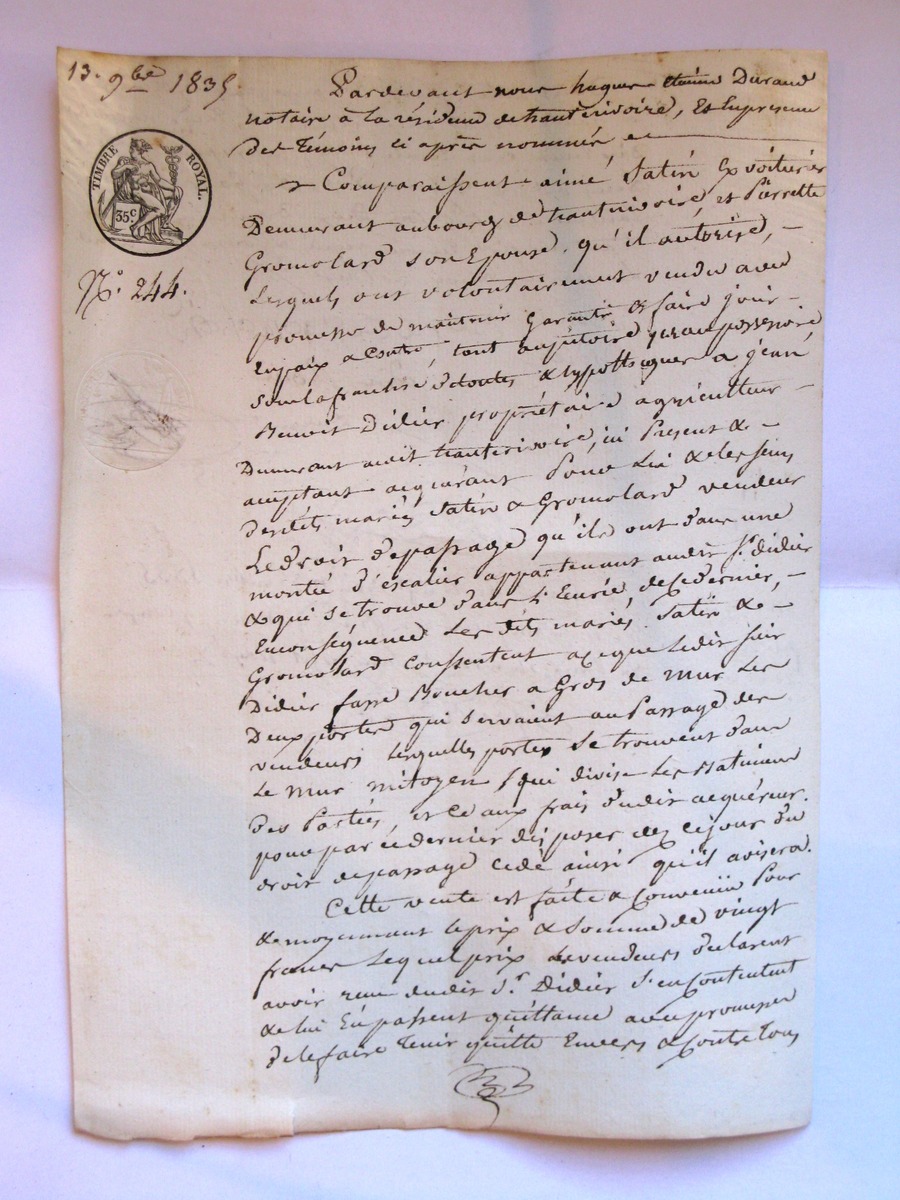 13. 9bre 1835
TIMBRE ROYAL.
35c
No. 244.
Pardevant nous hugue etienne Durand
notaire à la résidence de hauterivoire, et en presence
des témoins ci après nommés
Comparaissent aimé Satin Ex voiturier
Demeurant au bourg de hauterivoire, et Pierrette
Gromolard son Epouse, qu'il autorise,
Lesquels ont volontairement vendu avec
promesse de maintenir garantir & faire jouir
En paix & Contre, tant au pétitoire qu'au possessoire,
sous la franchise de doutes & hypothoques a jean
Benoit Didier propriétaire agriculteur
Demeurant audit hauterivoire, ici Present &
acceptant acquérant Pour Lui & les siens
Desdits mariés Satin & Gromolard vendeurs
Le droit de passage qu'ils ont dans une
monté d'escalier appartenant audit Sr. didier
& qui se trouve dans l'Eurie de ce dernier,
En conséquence Les dits mariés Satin &
Gromolard Conssentent a ce que Ledit sieur
Didier fasse Boucher a Gros de mur Les
Deux portes qui servaient au Passage des
vendeurs Lesquelles portes se trouvent dans
Le mur mitoyen qui divise Les Batiments
Des Parties, et ce aux frais dudit acquéreur.
pour par ce dernier disposer des ce jour du
droit de passage cedé ainsi qu'il avisera.
Cette vente est faite & Convenue Pour
& moyennant le prix & Somme de vingt
francs Lequel prix Les vendeurs déclarent
avoir reçu dudit Sr. Didier s'en Contentent
& lui En passent quittance avec promesse
de le faire tenir quitte Envers & Contre tous